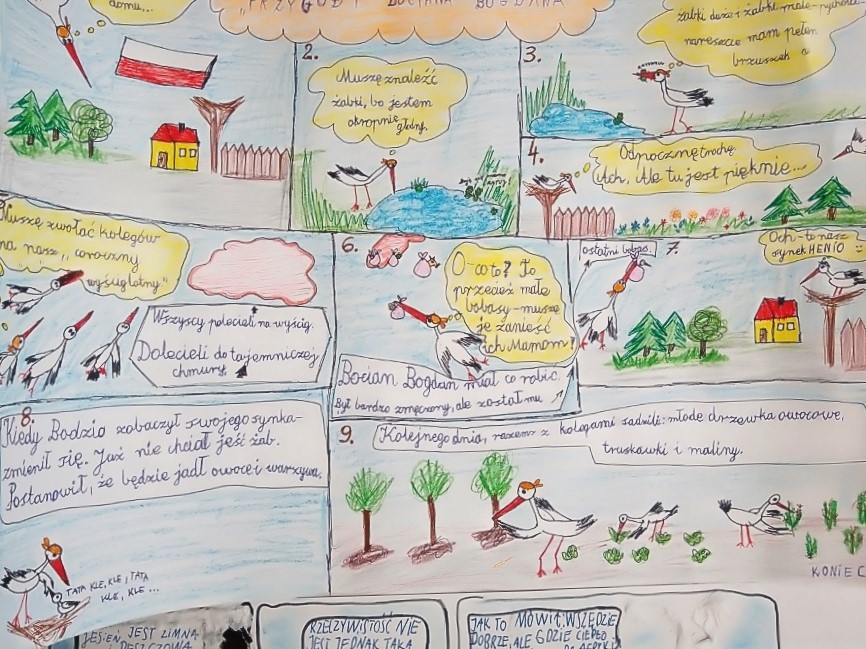 "PRZYGODY BOCIANA BOGDANA"
domu...
2.
Muszę znaleźć
żabki, bo jestem
okropnie głodny.
3.
żabki duże i żabki małe - pychota
nareszcie mam pełen
brzuszek
4.
Odpocznę trochę.
Ach, Ale tu jest pięknie...
Muszę zwołać kolegów
na nasz „coroczny
wyścig lotny."
Wszyscy polecieli na wyścig.
Dolecieli do tajemniczej
chmury.
6.
O-co to? To
przecież małe
bobasy - muszę
je zanieść
ich Mamom?
Bocian Bogdan miał co robić.
Był bardzo zmęczony, ale został mu
ostatni bobas.
7.
Och - to nasz
synek HENIO
8.
Kiedy Bodzio zobaczył swojego synka-
zmienił się. Już nie chciał jeść żab.
Postanowił, że będzie jadł owoce i warzywa.
TATA KLE, KLE, TATA
KLE, KLE...
9.
Kolejnego dnia, razem z kolegami sadzili: młode drzewka owocowe,
truskawki i maliny.
KONIEC
JESIEŃ JEST ZIMNA
I DESZCZOWA
RZECZYWISTOŚĆ NIE
JEST JEDNAK TAKA
JAK TO MÓWIĄ: WSZĘDZIE
DOBRZE, ALE GDZIE CIEPŁO